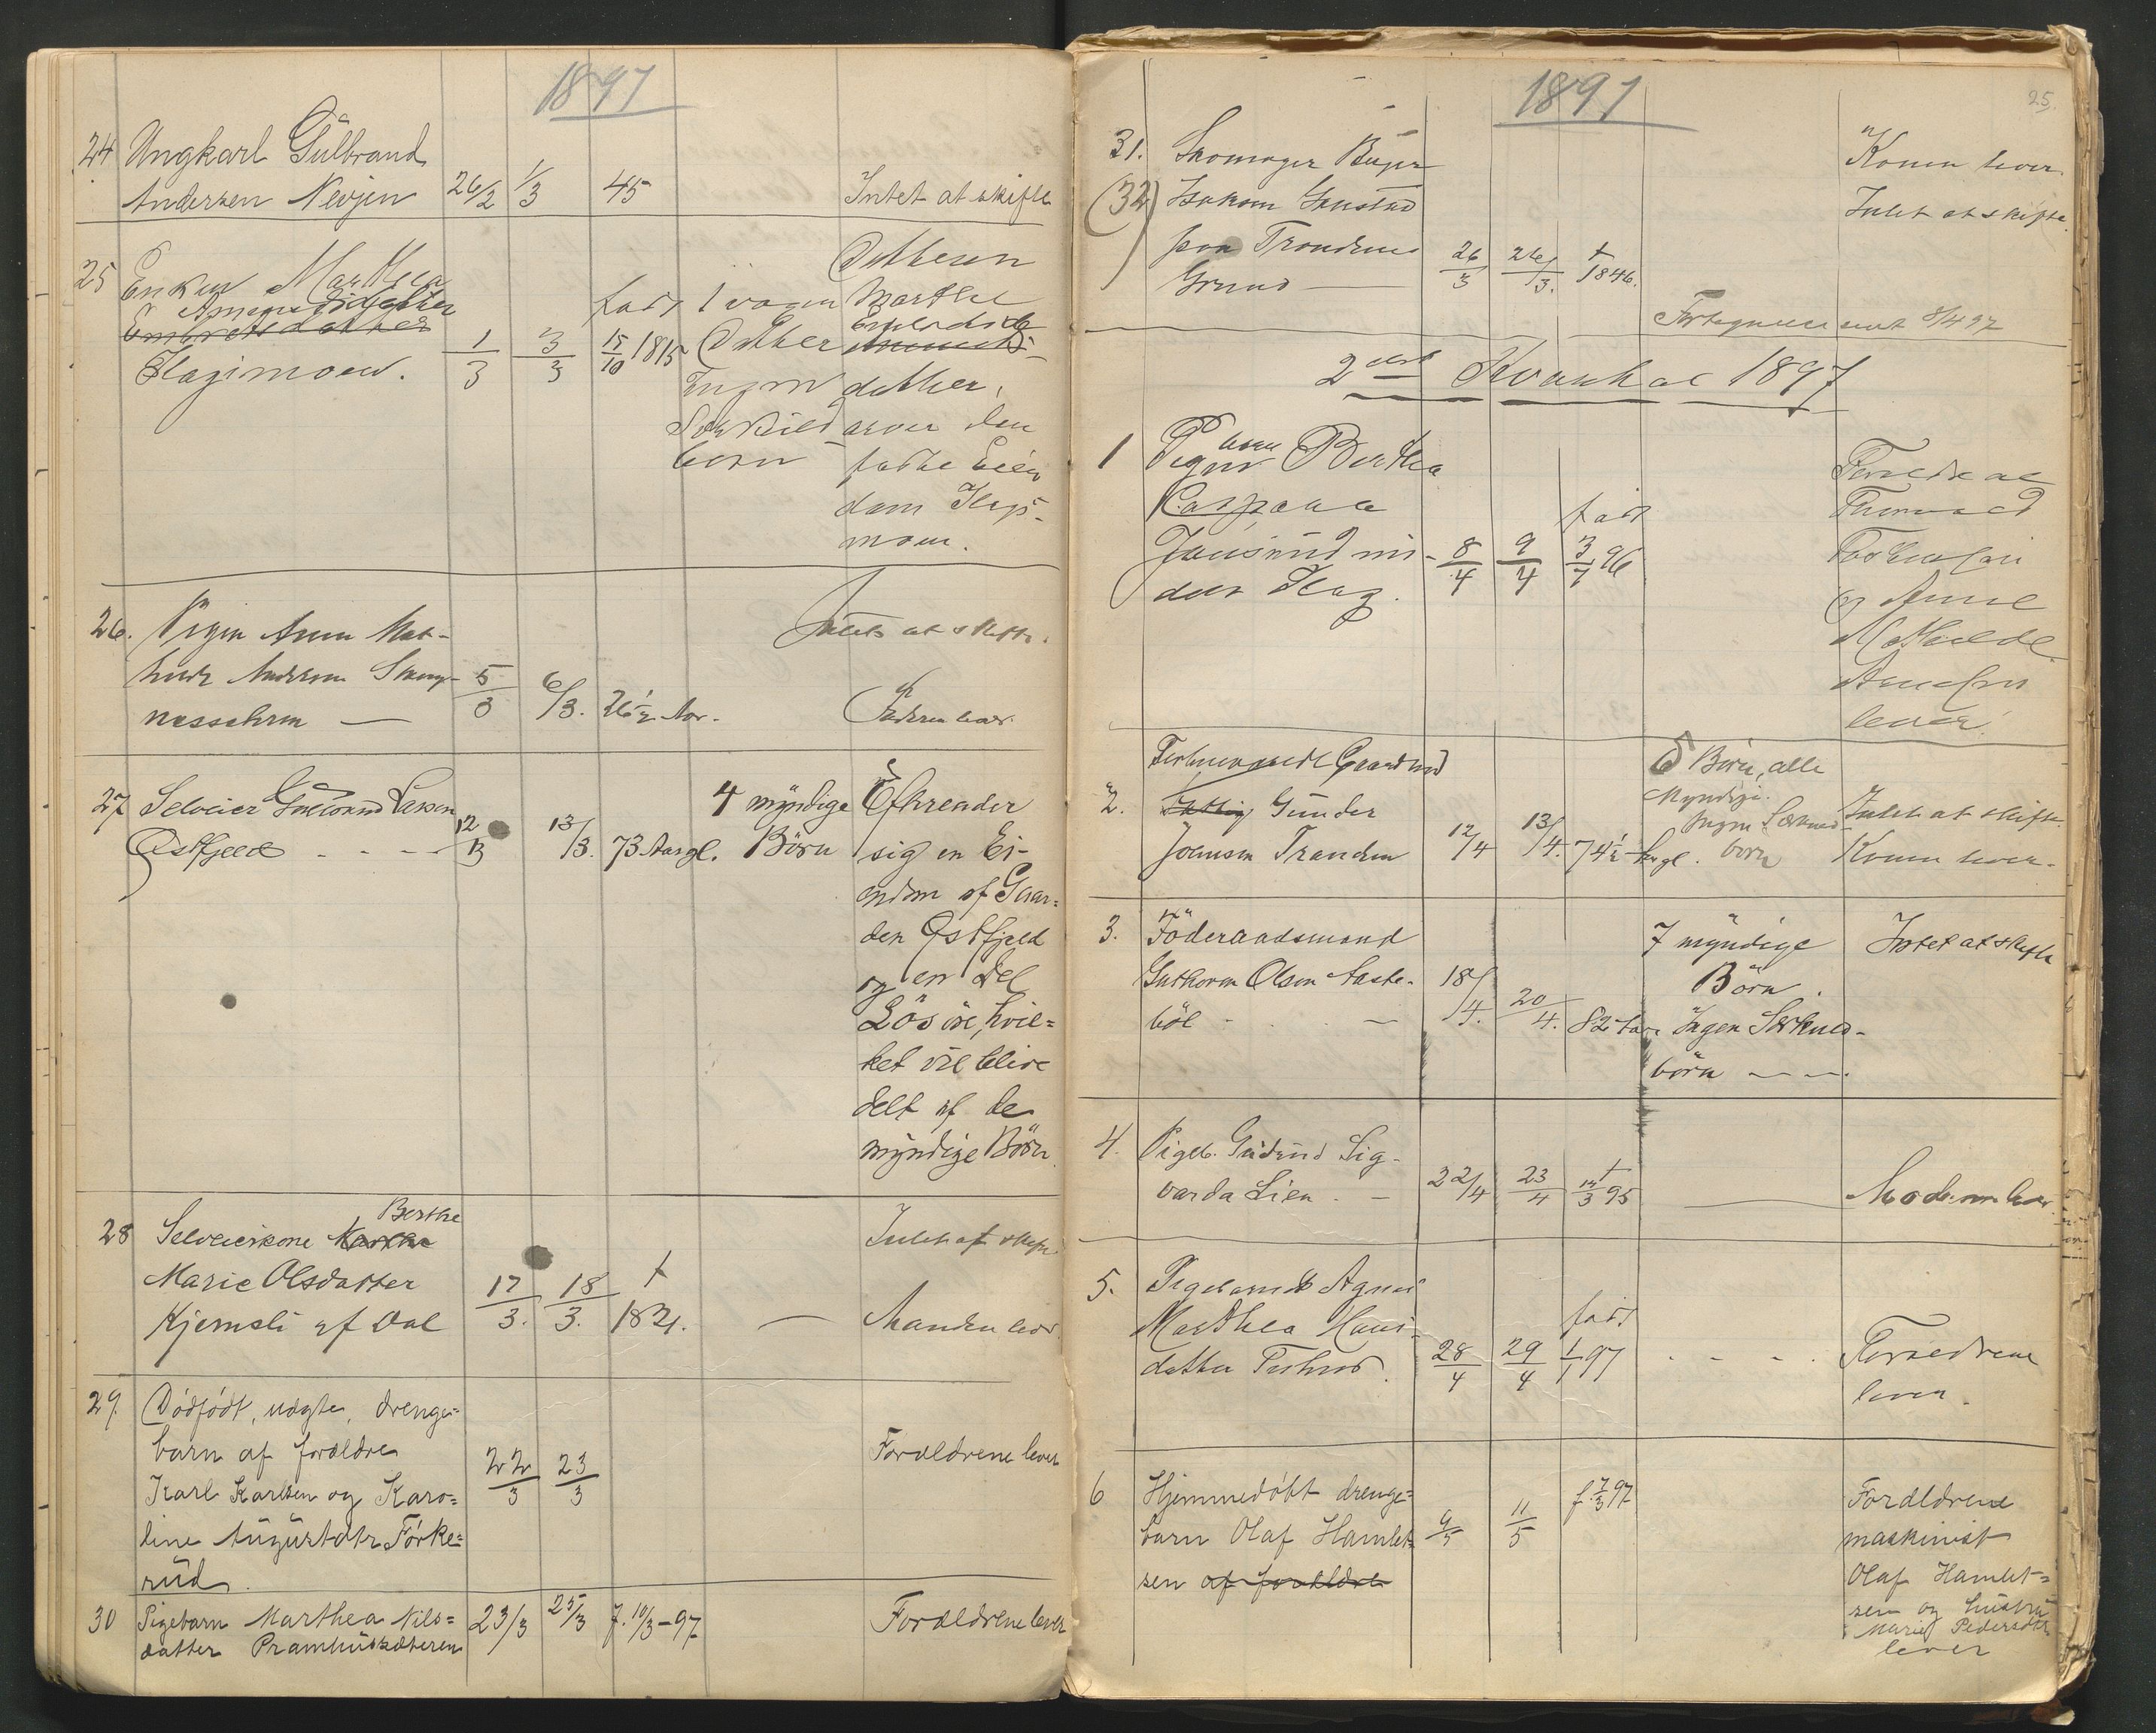 1897
24. Ungkarl Gulbrand
Andersen Nevjen 26/2 1/3 45 Intet at skifte
25 Enken Marthea
Amundsdatter
Embretsdatter
Hagimoen. 1/3 3/3 født 15/10 1815
1 voxen
Datter
Ingen
Særkuld
børn
Datteren
Marthe
datter,
arver den
faste Eien
dom Hagi-
moen.
26. Pigen Anne Mat-
hilde Andersen 5/3 6/3. 26 1/2 Aar. Intet at skifte.
Faderen lever.
27 Selveier Gulbrand Larsen
Østfjeld - - - 12/3 13/3. 73 Aar gl.
4 myndige
Börn
Efterlader
sig en Ei-
endom af Gaar=
den Østfjeld
og en Del
Lösöre, hvil=
ket vil blive
delt af de
myndige Börn.
28 Selveierkone Marthe Berthe
Marie Olsdatter
Kjemsli af Dal 17/3. 18/3. + 1821. —
Intet at skifte.
Manden lever.
29. Dødfødt, uægte, drenge=
barn af forældre
Karl Karlsen og Karo=
line Augustdtr Førke=
rud. 22/3 23/3 Forældrene lever
30 Pigebarn Marthea Nils=
datter Pramhussæteren 23/3 25/3 f. 10/3-97 Forældrene lever
1897
25.
31. Skomager Birger
(32) Isaksen Grustad
paa Trondens
Grund — 26/3 26/3. + 1846.
Konen lever.
Intet at skifte.
Fortegnelse sendt 8/4 97
2det Kvartal 1897
1 Pigebarn Berthea
Kaspara
Jonsrud un-
der Hag. 8/4 9/4 født 3/7 96
Forældrene
Thorvald
og Anne
Mathilde
lever.
2. Forhenværende Gaardmd
Gunder
Joensen Tranden 12/4 13/4. 74 1/2 Aar gl.
6 Börn, alle
Myndige.
Ingen Særkuld-
börn
Intet at skifte.
Konen lever.
3. Föderaadsmand
Guthorm Olsen Aaste-
böl - - — 18/4. 20/4. 82 Aar
7 myndige
Börn.
Ingen Særkuld-
börn — —.
Intet at skifte
4. Pigeb. Gudrud Sig-
varda Lien. - 22/4 23/4 + 14/3 95 — Moderen lever.
5. Pigebarnet Agnes
Marthea Hans-
datter 28/4 29/4 født 1/1 97 - - - -
Forældrene
lever.
6 Hjemmedøbt drenge=
barn Olaf Hamlet=
sen af forældre 9/5 11/5 f. 7/3 97
Forældrene
maskinist
Olaf Hamlet=
sen og hustru
Marie Pedersdtr
lever